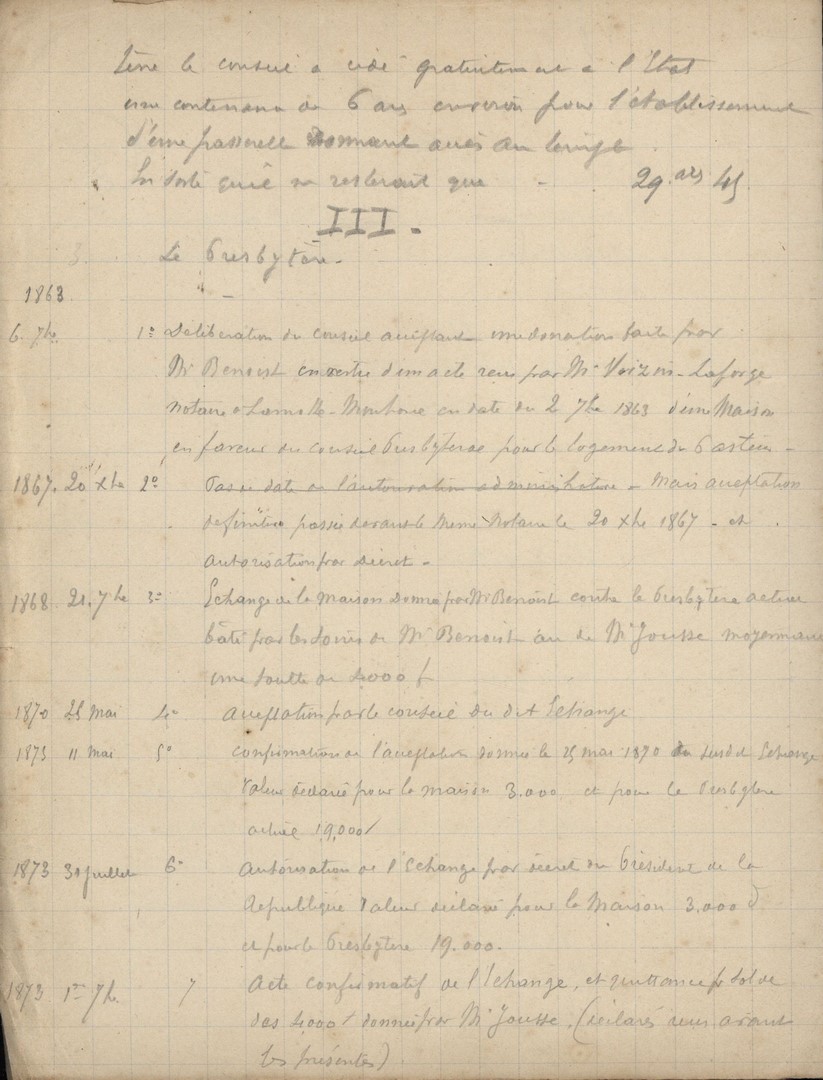 le conseil a cédé gratuitement à l'Etat
une contenance de 6 ares environ pour l'établissement
d'une passerelle donnant accès au temple.
En sorte qu'il ne resterait que - 29 ares 45
III.
Le Presbytère.
1863
6. 7bre 1º Délibération du conseil acceptant une donation faite par
Mr Benoist en vertu d'un acte reçu par Me Voizin-Laforge
notaire à Lamotte- en date du 2 7bre 1863 d'une Maison
en faveur du conseil Presbyteral pour le logement du Pasteur.
1867. 20 Xbre 2º Pas de date de l'autorisation administrative - Mais acceptation
definitive passée devant le meme Notaire le 20 Xbre 1867 - et
autorisation par Décret.
1868 21. 7bre 3º Echange de la Maison donnée par Mr Benoist contre le Presbytere actuel
bâti par les soins de Mr Benoist de Mr Jousse moyennant
une soulte de 4000 f
1870 25 Mai 4º Acceptation par le conseil du dit Echange
1873 11 Mai 5º Confirmation de l'acceptation donnée le 25 mai 1870 du susdit Echange
Valeur déclarée pour la maison 3.000 et pour le Presbytere
actuel 19,000 f
1873 30 juillet 6º Autorisation de l'Echange par décret du Président de la
République Valeur déclarée pour la Maison 3.000
et pour le Presbytere 19.000.
1873 1er 7bre 7 Acte confirmatif de l'Echange, et quittance pr solde
des 4,000 f donnée par Mr Jousse. (déclarés reçus avant
les présentes)